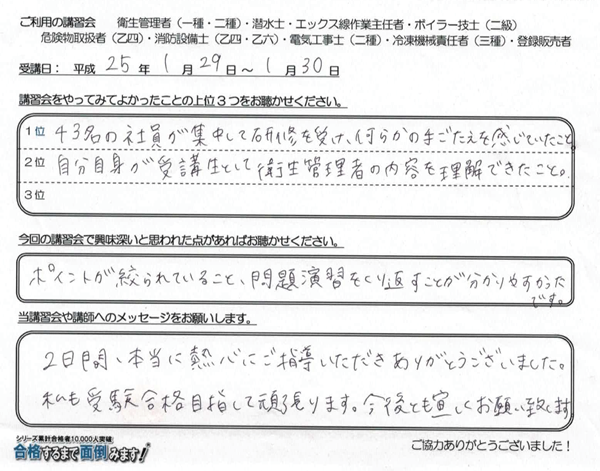 ご利用の講習会　衛生管理者（一種・二種）・潜水士・エックス線作業主任者・ボイラー技士（二級）
危険物取扱者（乙四）・消防設備士（乙四・乙六）・電気工事士（二種）・冷凍機械責任者（三種）・登録販売者
受講日： 平成 25 年 1 月 29 日 ～ 1 月 30 日
講習会をやってみてよかったことの上位３つをお聴かせください。
１位 43名の社員が集中して研修を受け、何らかの手ごたえを感じていたこと。
２位 自分自身が受講生として衛生管理者の内容を理解できたこと。
３位
今回の講習会で興味深いと思われた点があればお聴かせください。
ポイントが絞られていること、問題演習をくり返すことが分かりやすかった
です。
当講習会や講師へのメッセージをお願いします。
2日間、本当に熱心にご指導いただきありがとうございました。
私も受験合格目指して頑張ります。今後とも宜しくお願い致します
シリーズ累計合格者10,000人突破
合格するまで面倒みます！
ご協力ありがとうございました！